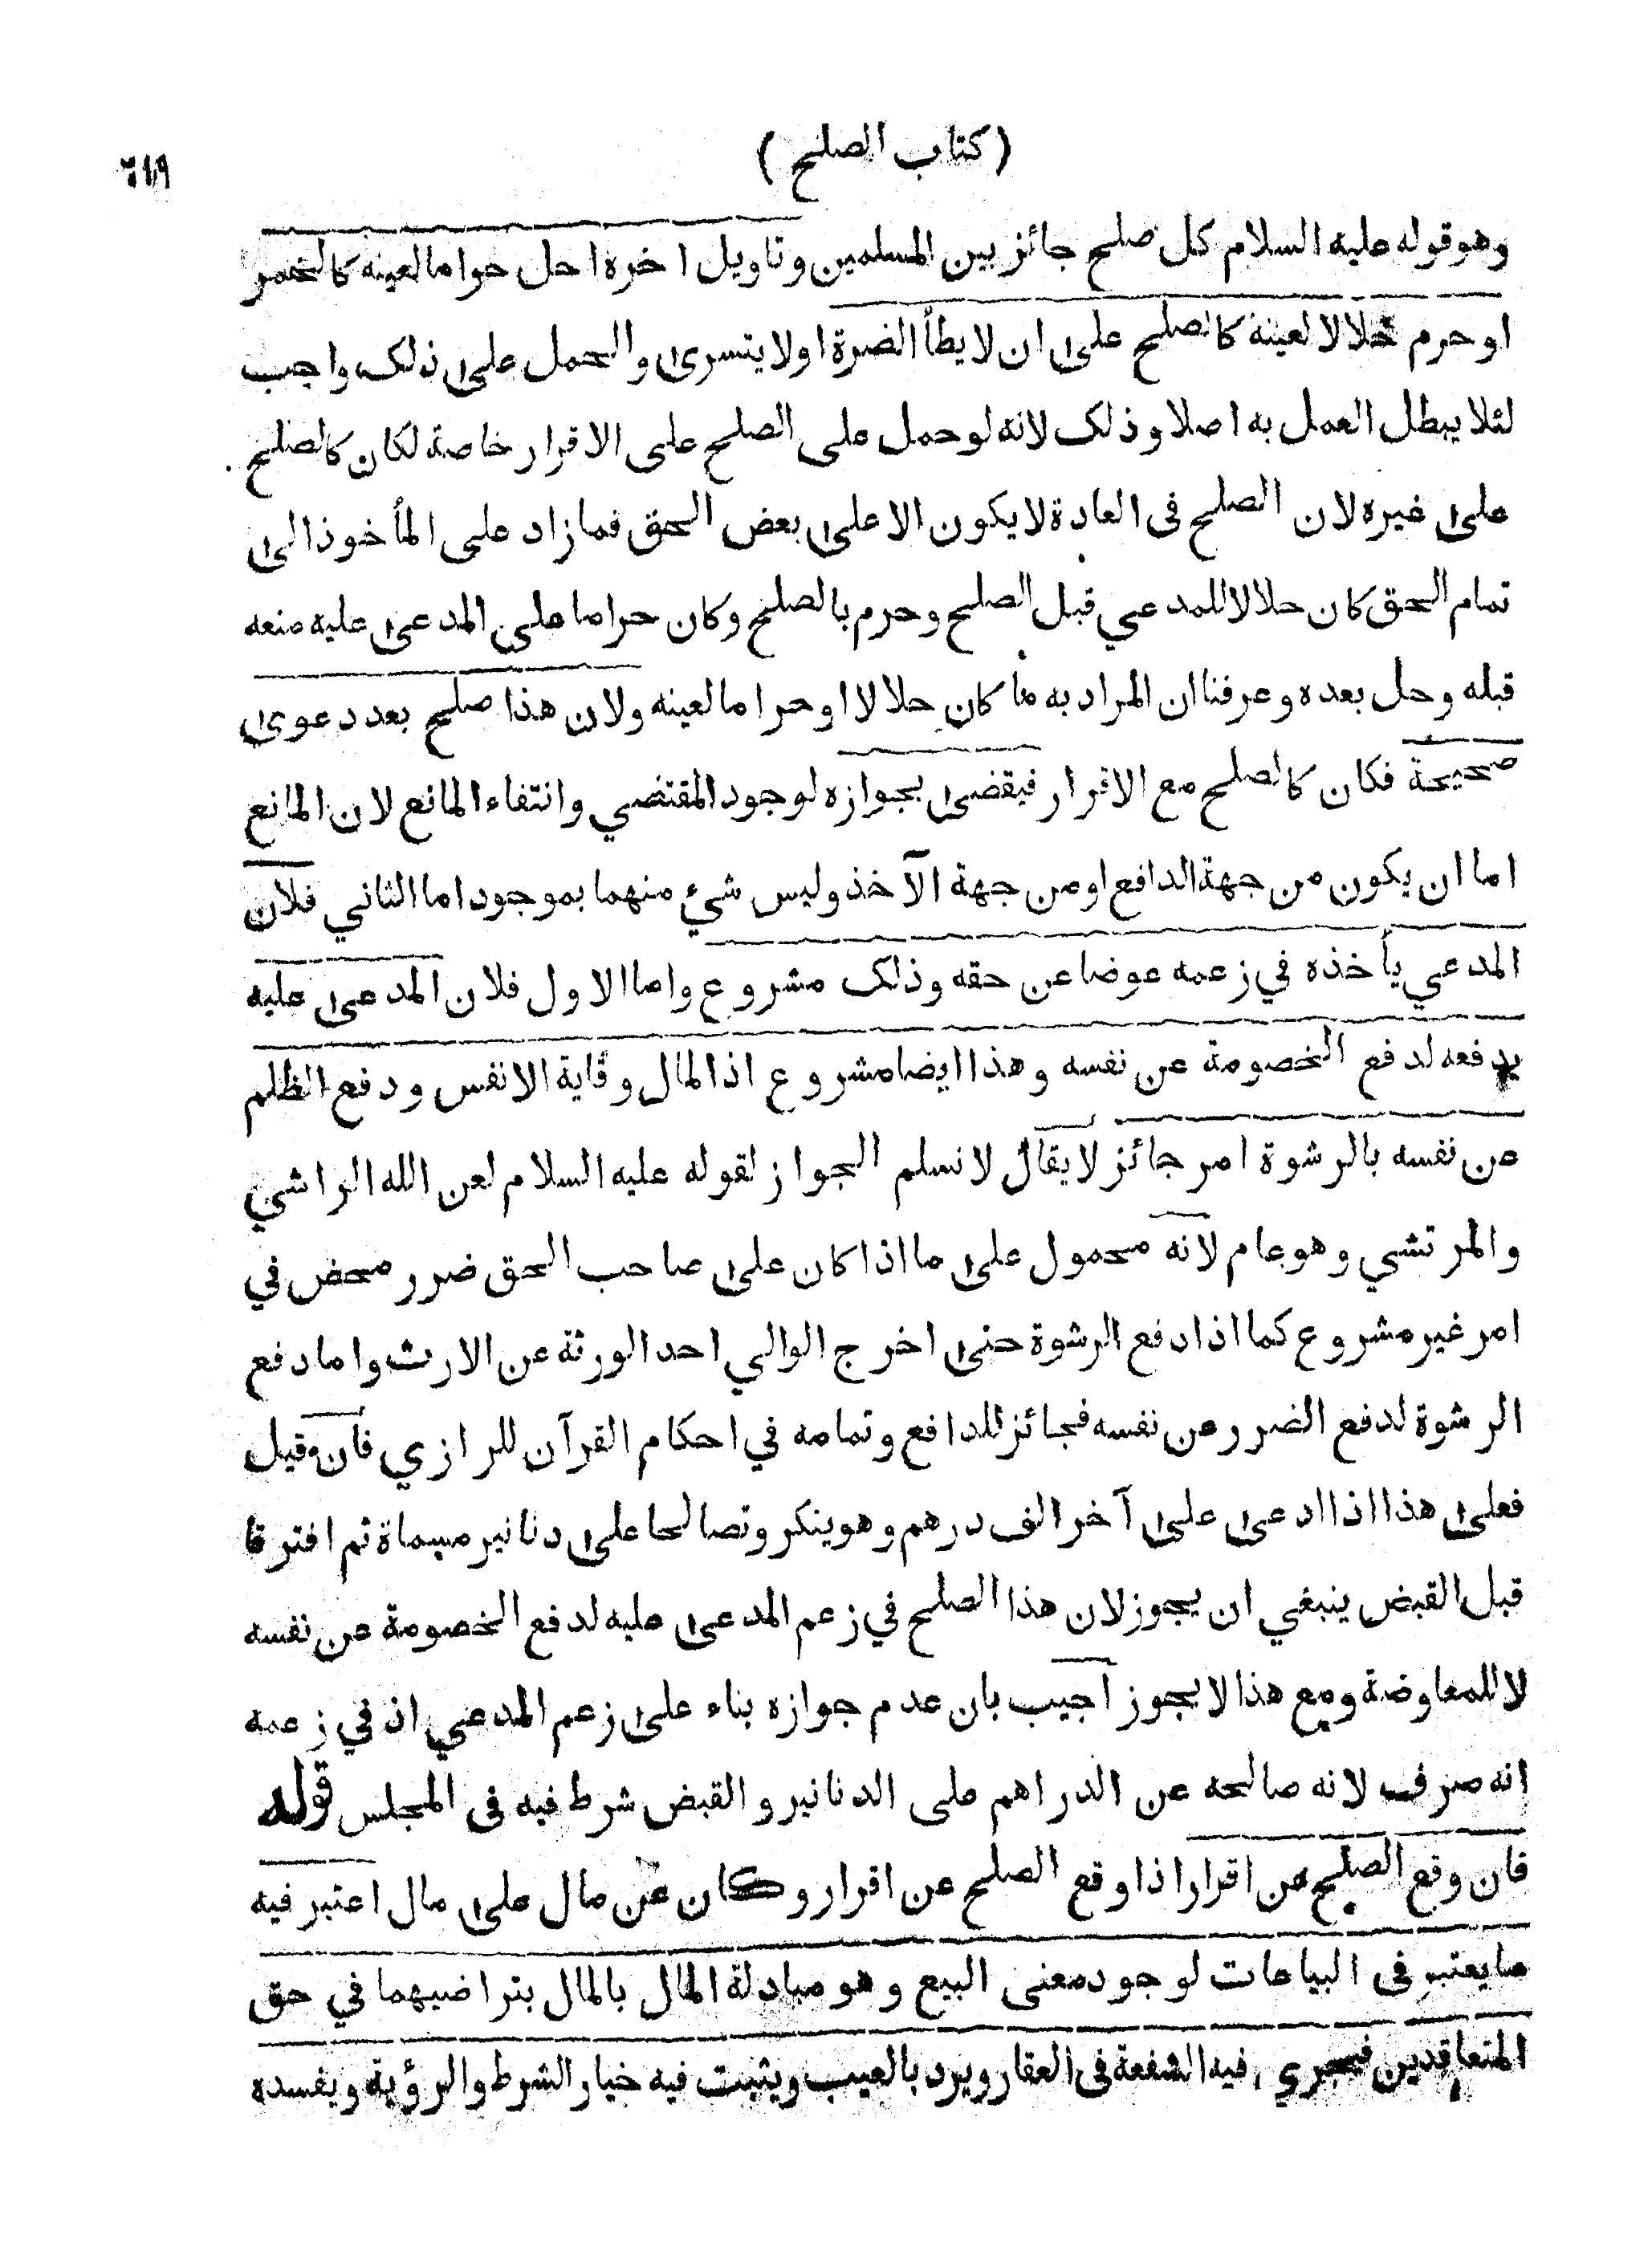 (كتاب الصلح)
٦١٩
وهو قوله عليه السلام كل صلح جائز بين المسلمين وتاويل اخره احل حراما لعينه كالخمر
او حرم حلالا لعينة كالصلح على ان لا يطأ الضرة او لا يتسرى والحمل على ذلك واجب
لئلا يبطل العمل به اصلا وذلك لانه لو حمل على الصلح على الاقرار خاصة لكان كالصلح
على غيره لان الصلح فى العادة لا يكون الا على بعض الحق فما زاد على المأخوذ الى
تمام الحق كان حلالا للمدعي قبل الصلح وحرم بالصلح وكان حراما على المدعى عليه منعه
قبله وحل بعده وعرفنا ان المراد به ما كان حلالا او حراما لعينه ولان هذا صلح بعد دعوى
صحيحة فكان كالصلح مع الاقرار فيقضى بجوازه لوجود المقتضي وانتفاء المانع لان المانع
اما ان يكون من جهة الدافع او من جهة الآخذ وليس شيء منهما بموجود اما الثاني فلان
المدعي يأخذه في زعمه عوضا عن حقه وذلك مشروع واما الاول فلان المدعى عليه
يدفعه لدفع الخصومة عن نفسه وهذا ايضا مشروع اذ المال وقاية الانفس ودفع الظلم
عن نفسه بالرشوة امر جائز لا يقال لا نسلم الجواز لقوله عليه السلام لعن الله الراشي
والمرتشي وهو عام لانه محمول على ما اذا كان على صاحب الحق ضرر محض في
امر غير مشروع كما اذا دفع الرشوة حتى اخرج الوالي احد الورثة عن الارث واما دفع
الرشوة لدفع الضرر عن نفسه فجائز للدافع وتمامه في احكام القرآن للرازي فان قيل
فعلى هذا اذا ادعى على آخر الف درهم وهو ينكر وتصالحا على دنانير مسماة ثم افترقا
قبل القبض ينبغي ان يجوز لان هذا الصلح في زعم المدعى عليه لدفع الخصومة عن نفسه
لا للمعاوضة ومع هذا لا يجوز اجيب بان عدم جوازه بناء على زعم المدعي اذ في زعمه
انه صرف لانه صالحه عن الدراهم على الدنانير والقبض شرط فيه فى المجلس قوله
فان وقع الصلح عن اقرار اذا وقع الصلح عن اقرار وكان عن مال على مال اعتبر فيه
ما يعتبر فى البياعات لوجود معنى البيع وهو مبادلة المال بالمال بتراضيهما في حق
المتعاقدين فيجري فيه الشفعة فى العقار ويرد بالعيب ويثبت فيه خيار الشرط والرؤية ويفسده